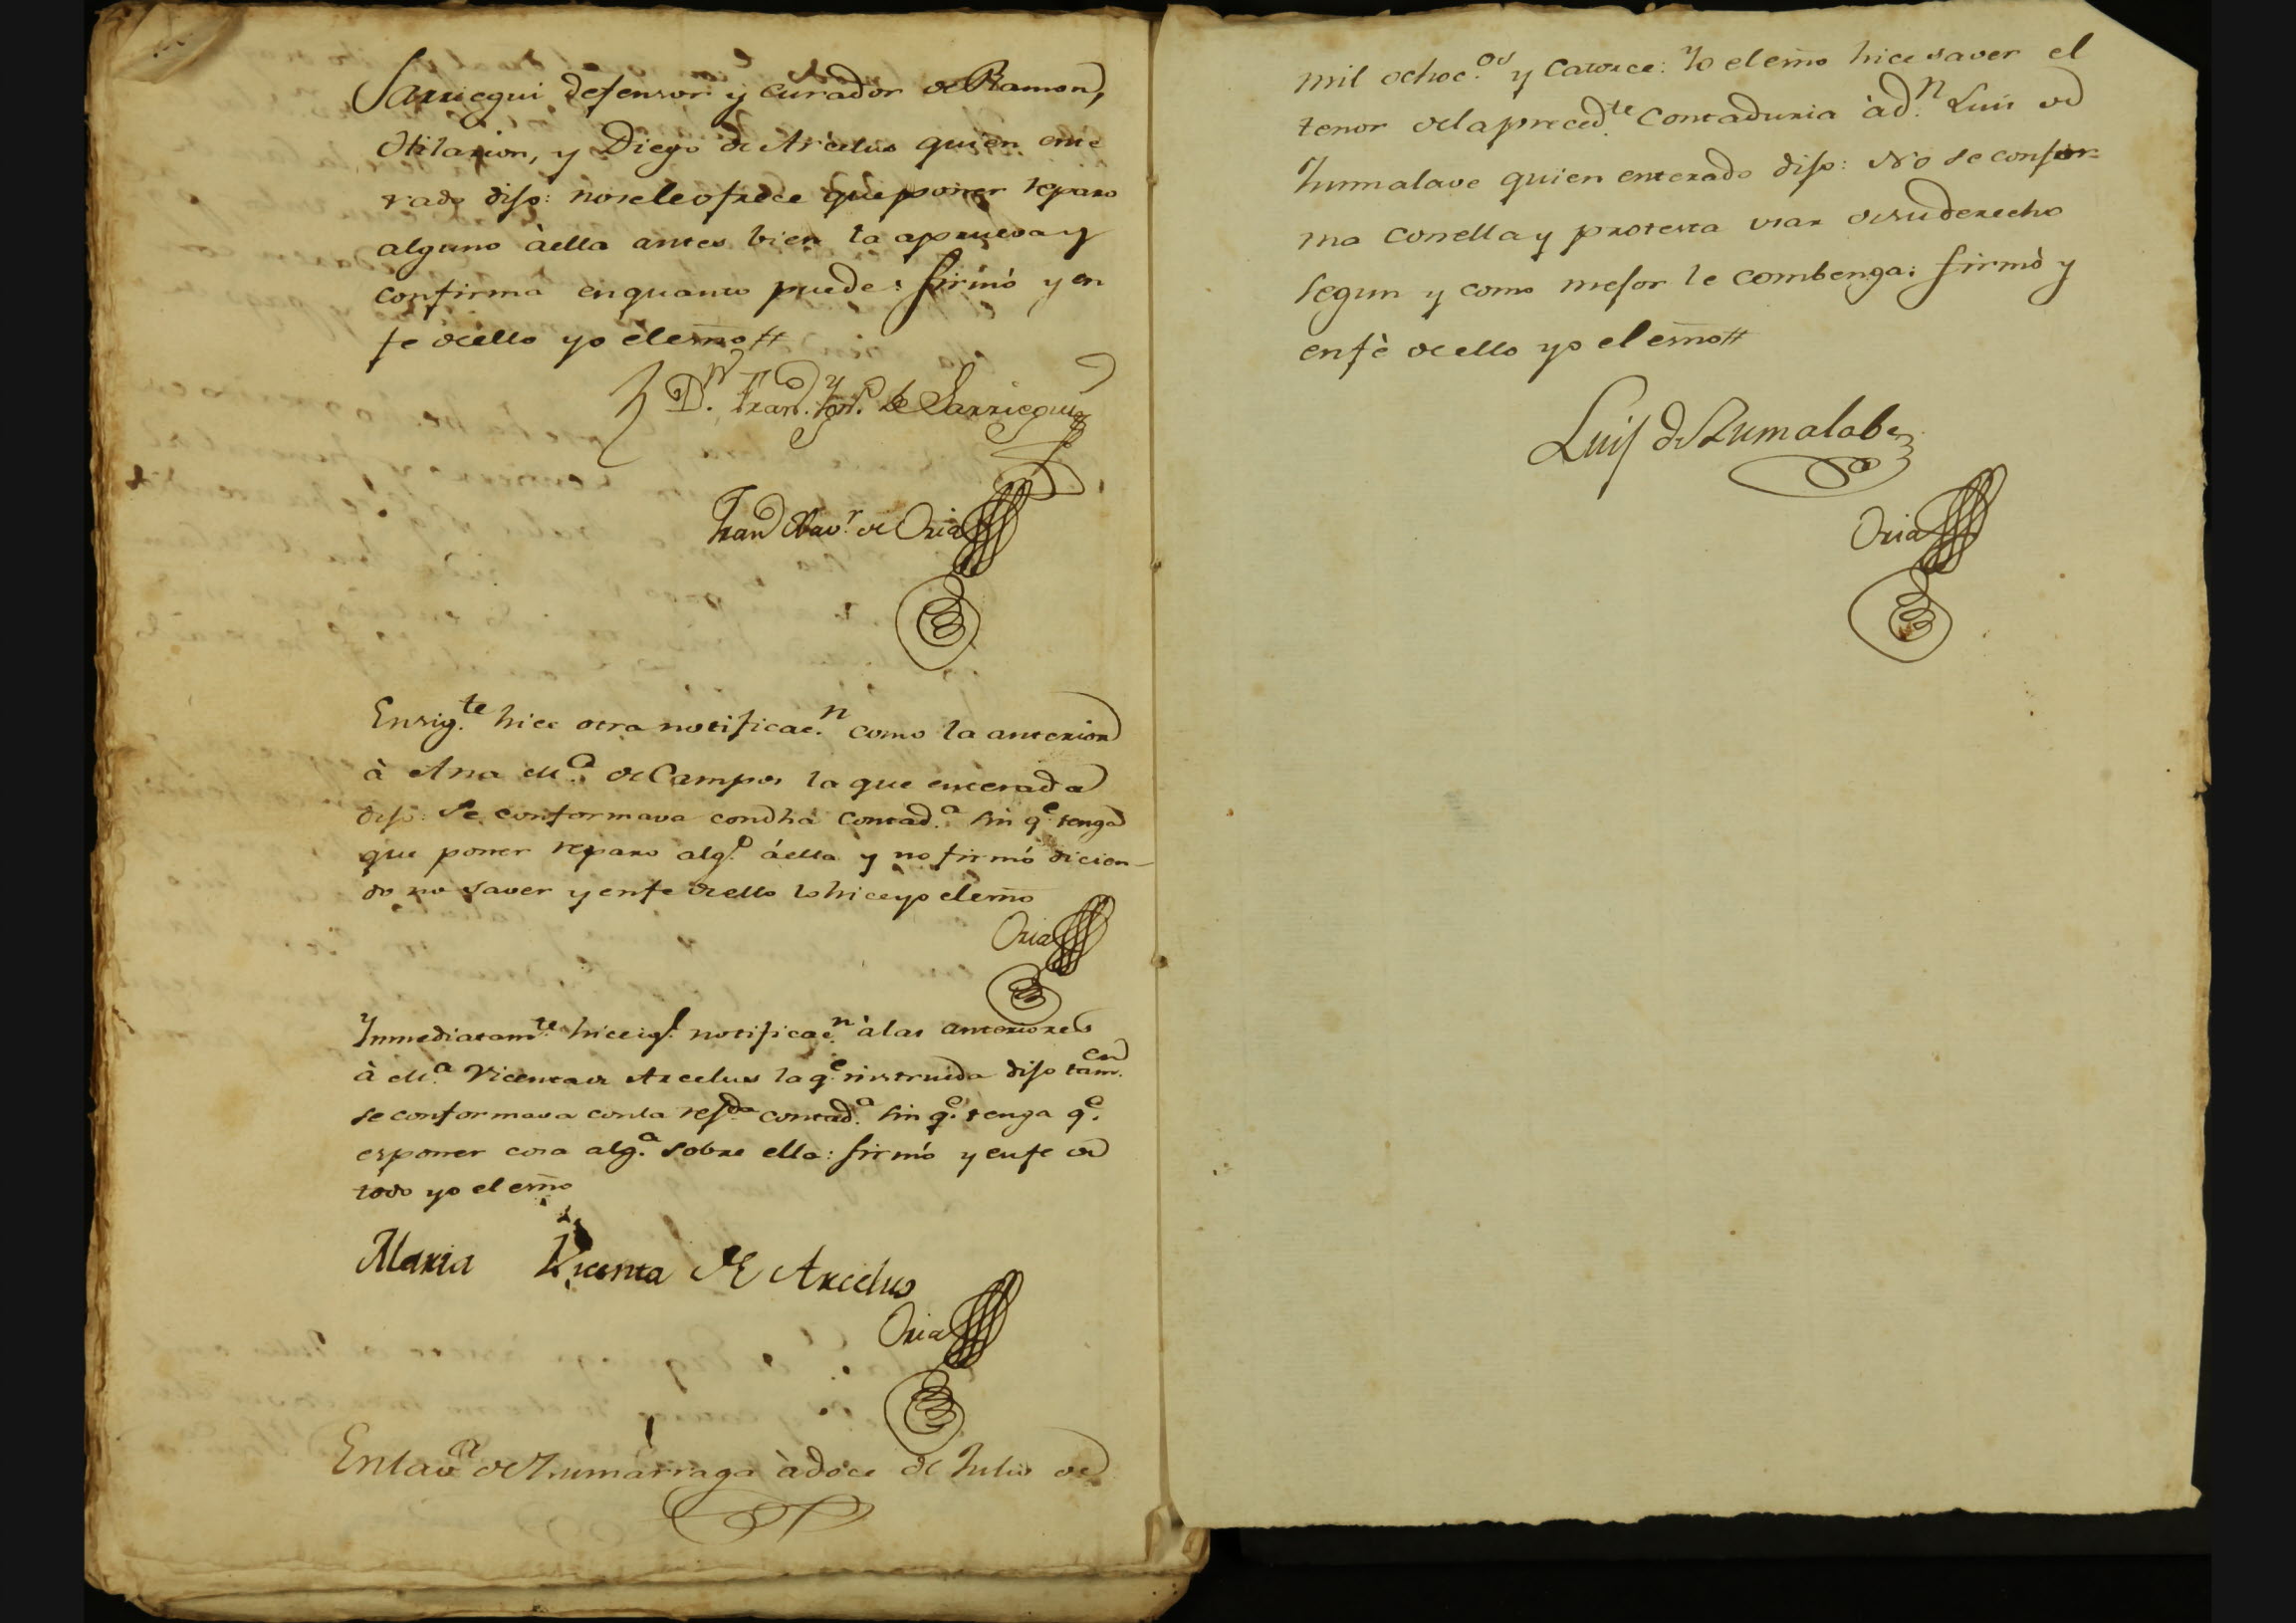 Sarriegui defensor y curador de Ramon,
Hilarion, y Diego de Arcelus quien ente
rado dijo: no se le ofrece que poner reparo
alguno à ella antes bien la aprueva y
confirma en quanto puede: firmó y en
fe de ello yo el esno//
Dn. Franco. Ygno. de Sarriegui
Franco Xavr. de Oria
En sigte. hice otra notificacn. como la anterior
à Ana Ma. de Campos la que enterada
dijo: Se conformava con dha Contada. sin qe. tenga
que poner reparo algo. á ella y no firmó dicien-
do no saver y en fe de ello lo hice yo el esno
Oria
Ynmediatamte. hice igl. notificacn. à las anteriores
à Ma. Vicenta de Arcelus la qe. instruida dijo tamen.
se conformava con la refda. contada. sin qe. tenga qe.
esponer cosa alga. sobre ella: firmó y en fe de
todo yo el esno
Maria Vicenta de Arcelus
Oria
En la va. de Zumarraga à doce de Julio de
mil ochocos. y catorce: Yo el esno hice saver el
tenor de la precedte. Contaduria à dn. Luis de
Zumalave quien enterado dijo: No se confor=
ma con ella y protesta usar de su derecho
segun y como mejor le combenga: firmò y
en fè de ello yo el esno//
Luis de Zumalabe
Oria